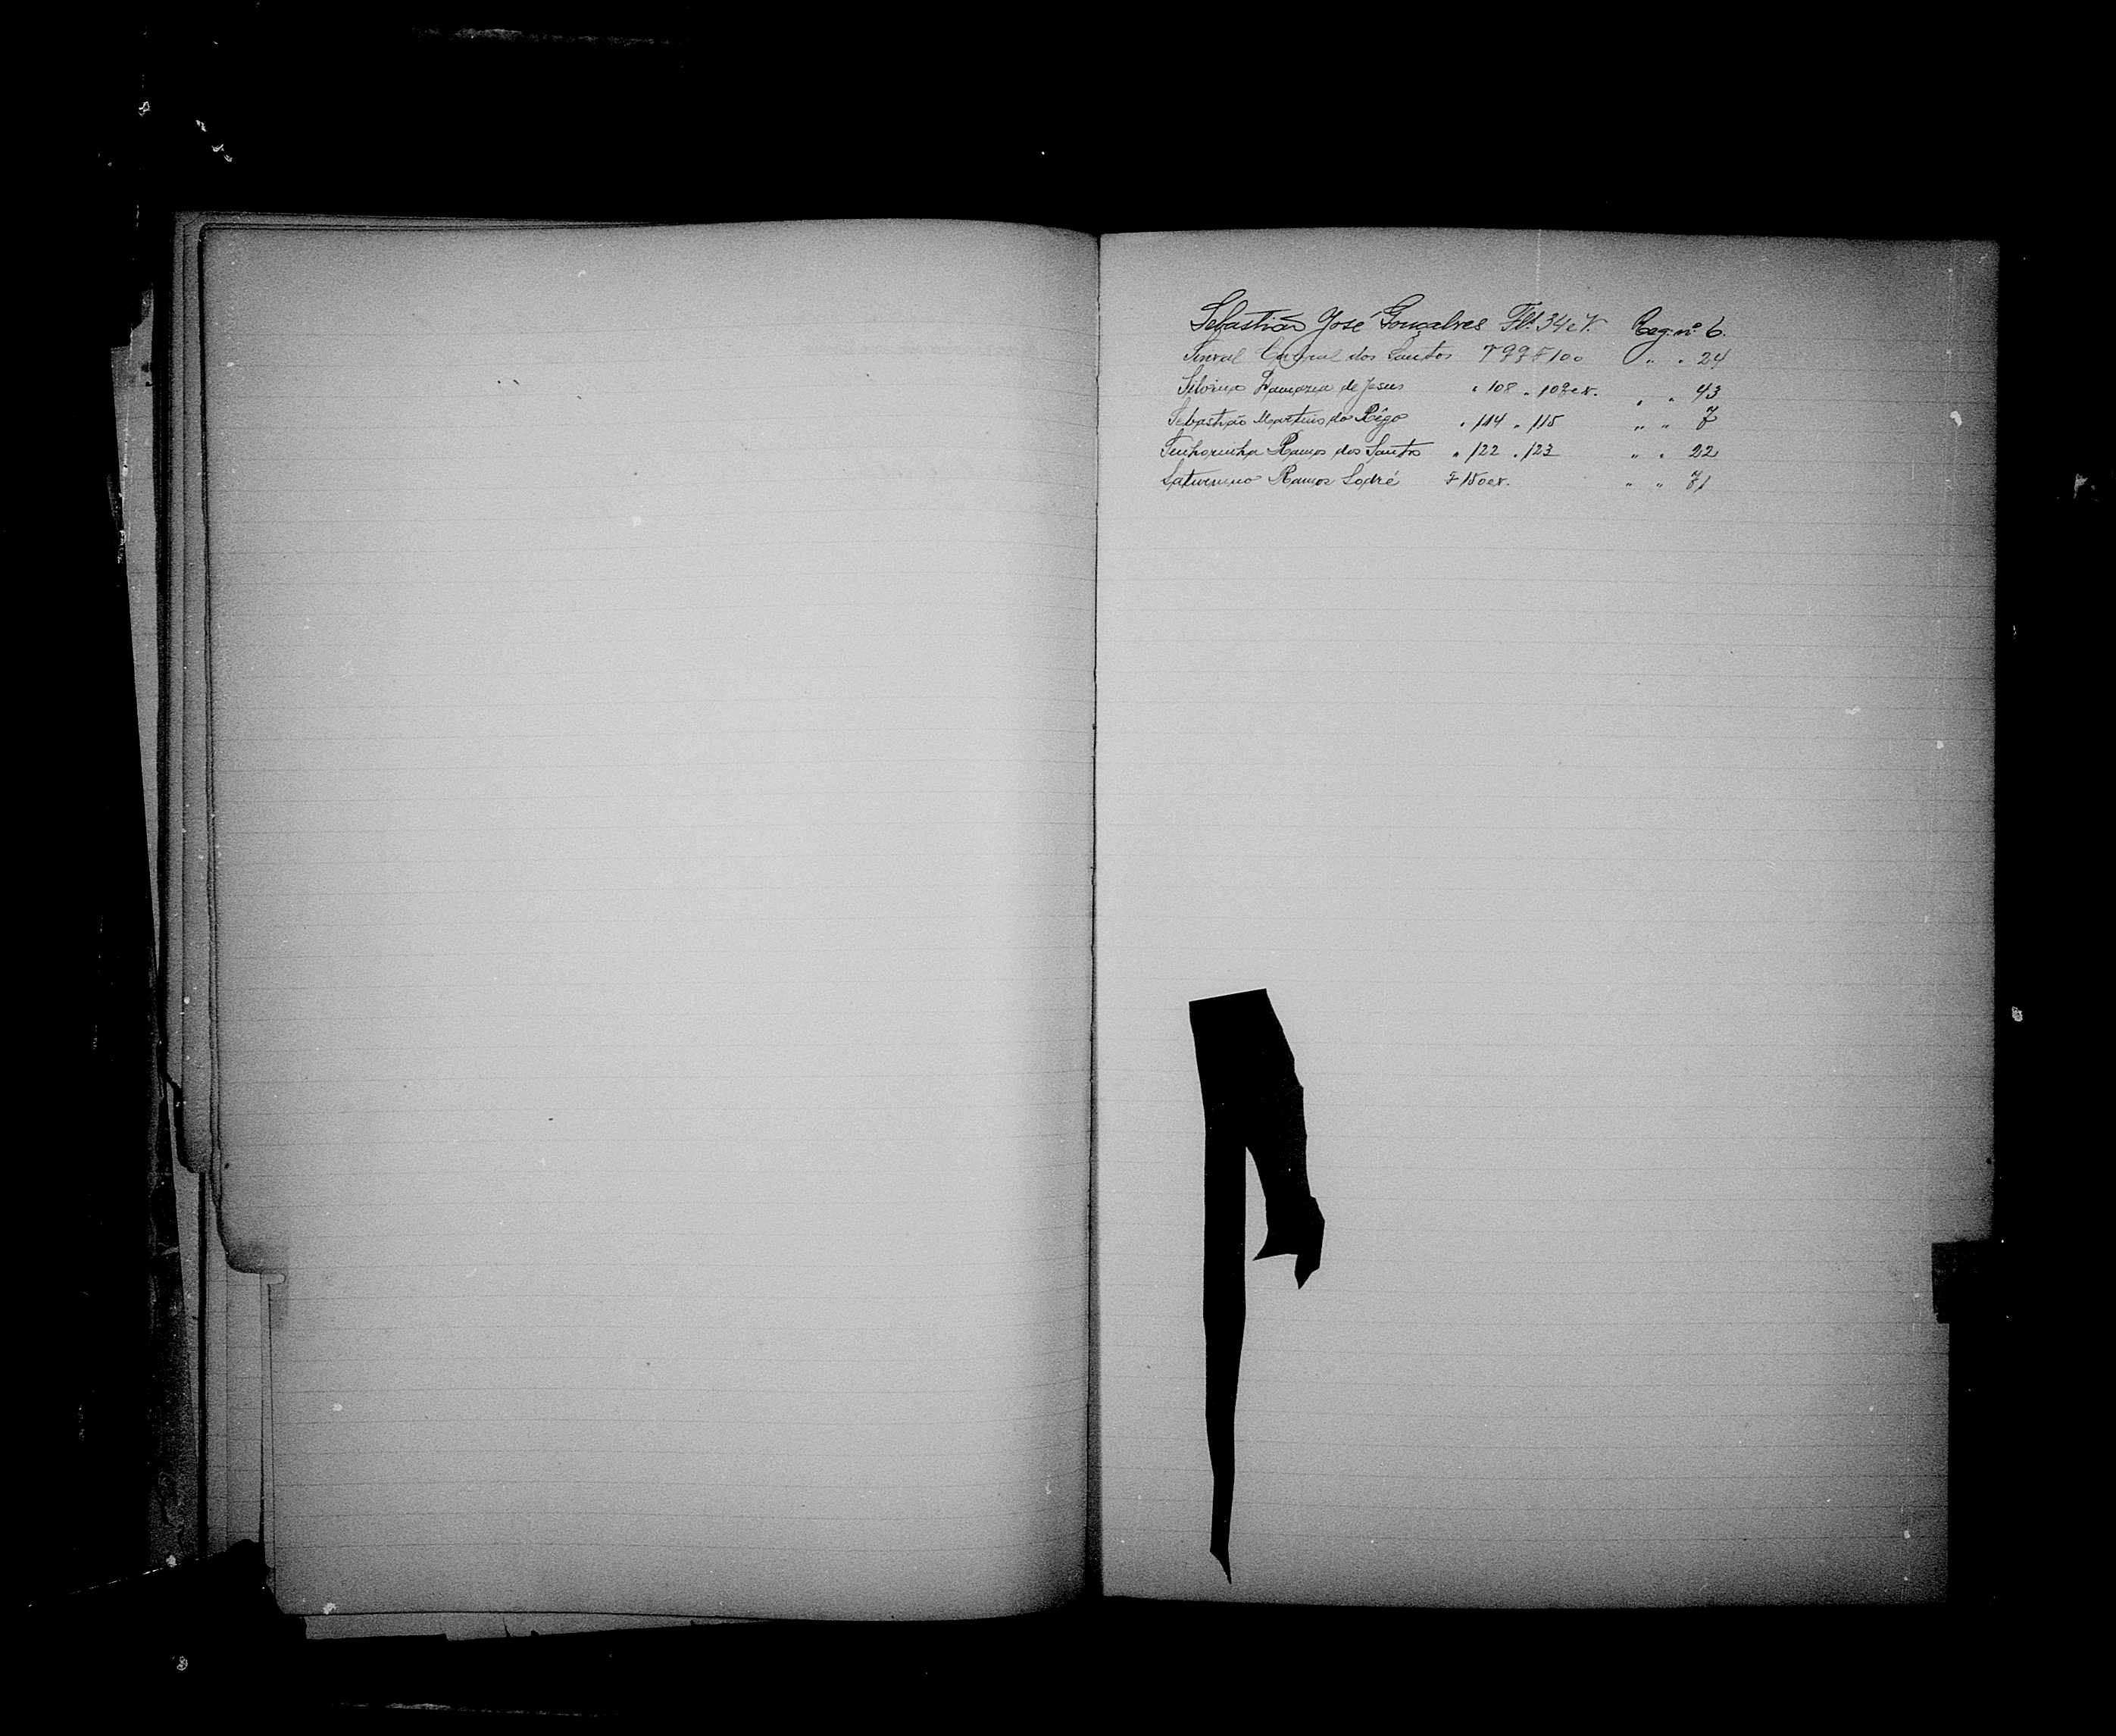 Sebastião José Gonçalves Fls. 34 e v. Reg. nº 6.
Sinval Cabral dos Santos F 99 F 100 " " 24
Silvina Damazia de Jesus " 108 " 109 e v. " " 43
Sebastião Martins do Rêgo " 114 " 115 " " 7
Senhorinha Ramos dos Santos " 122 " 123 " " 22
Saturnino Ramos Sodré F 150 e v. " " 71